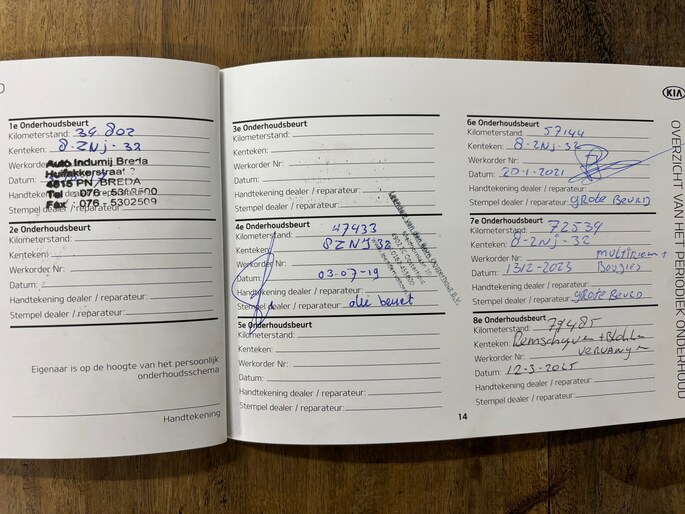 1e Onderhoudsbeurt
Kilometerstand: 34.802
Kenteken: 8-ZNj-32
Werkorder
Datum:
Handtekening dealer / reparateur:
Stempel dealer / reparateur:
Auto Indumij Breda
Huifakkerstraat
4815 PN BREDA
Tel : 076 -
Fax : 076 - 5302509
2e Onderhoudsbeurt
Kilometerstand:
Kenteken:
Werkorder Nr:
Datum:
Handtekening dealer / reparateur:
Stempel dealer / reparateur:
Eigenaar is op de hoogte van het persoonlijk
onderhoudsschema
Handtekening
3e Onderhoudsbeurt
Kilometerstand:
Kenteken:
Werkorder Nr:
Datum:
Handtekening dealer / reparateur:
Stempel dealer / reparateur:
4e Onderhoudsbeurt
Kilometerstand: 47433
Kenteken: 8ZNJ32
Werkorder Nr:
Datum: 03-07-19
Handtekening dealer / reparateur:
Stempel dealer / reparateur: olie beurt
5e Onderhoudsbeurt
Kilometerstand:
Kenteken:
Werkorder Nr:
Datum:
Handtekening dealer / reparateur:
Stempel dealer / reparateur:
6e Onderhoudsbeurt
Kilometerstand: 57144
Kenteken: 8-ZNj-32
Werkorder Nr:
Datum: 20-1-2021
Handtekening dealer / reparateur:
Stempel dealer / reparateur: grote Beurd
7e Onderhoudsbeurt
Kilometerstand: 72539
Kenteken: 8-ZNj-32
Werkorder Nr: multiriem +
Datum: 13-12-2023 Bougies
Handtekening dealer / reparateur:
Stempel dealer / reparateur: grote Beurd
8e Onderhoudsbeurt
Kilometerstand: 79485
Kenteken: Remschyven + Blokken
Werkorder Nr: vervangen
Datum: 12-3-2025
Handtekening dealer / reparateur:
Stempel dealer / reparateur:
14
KIA
OVERZICHT VAN HET PERIODIEK ONDERHOUD